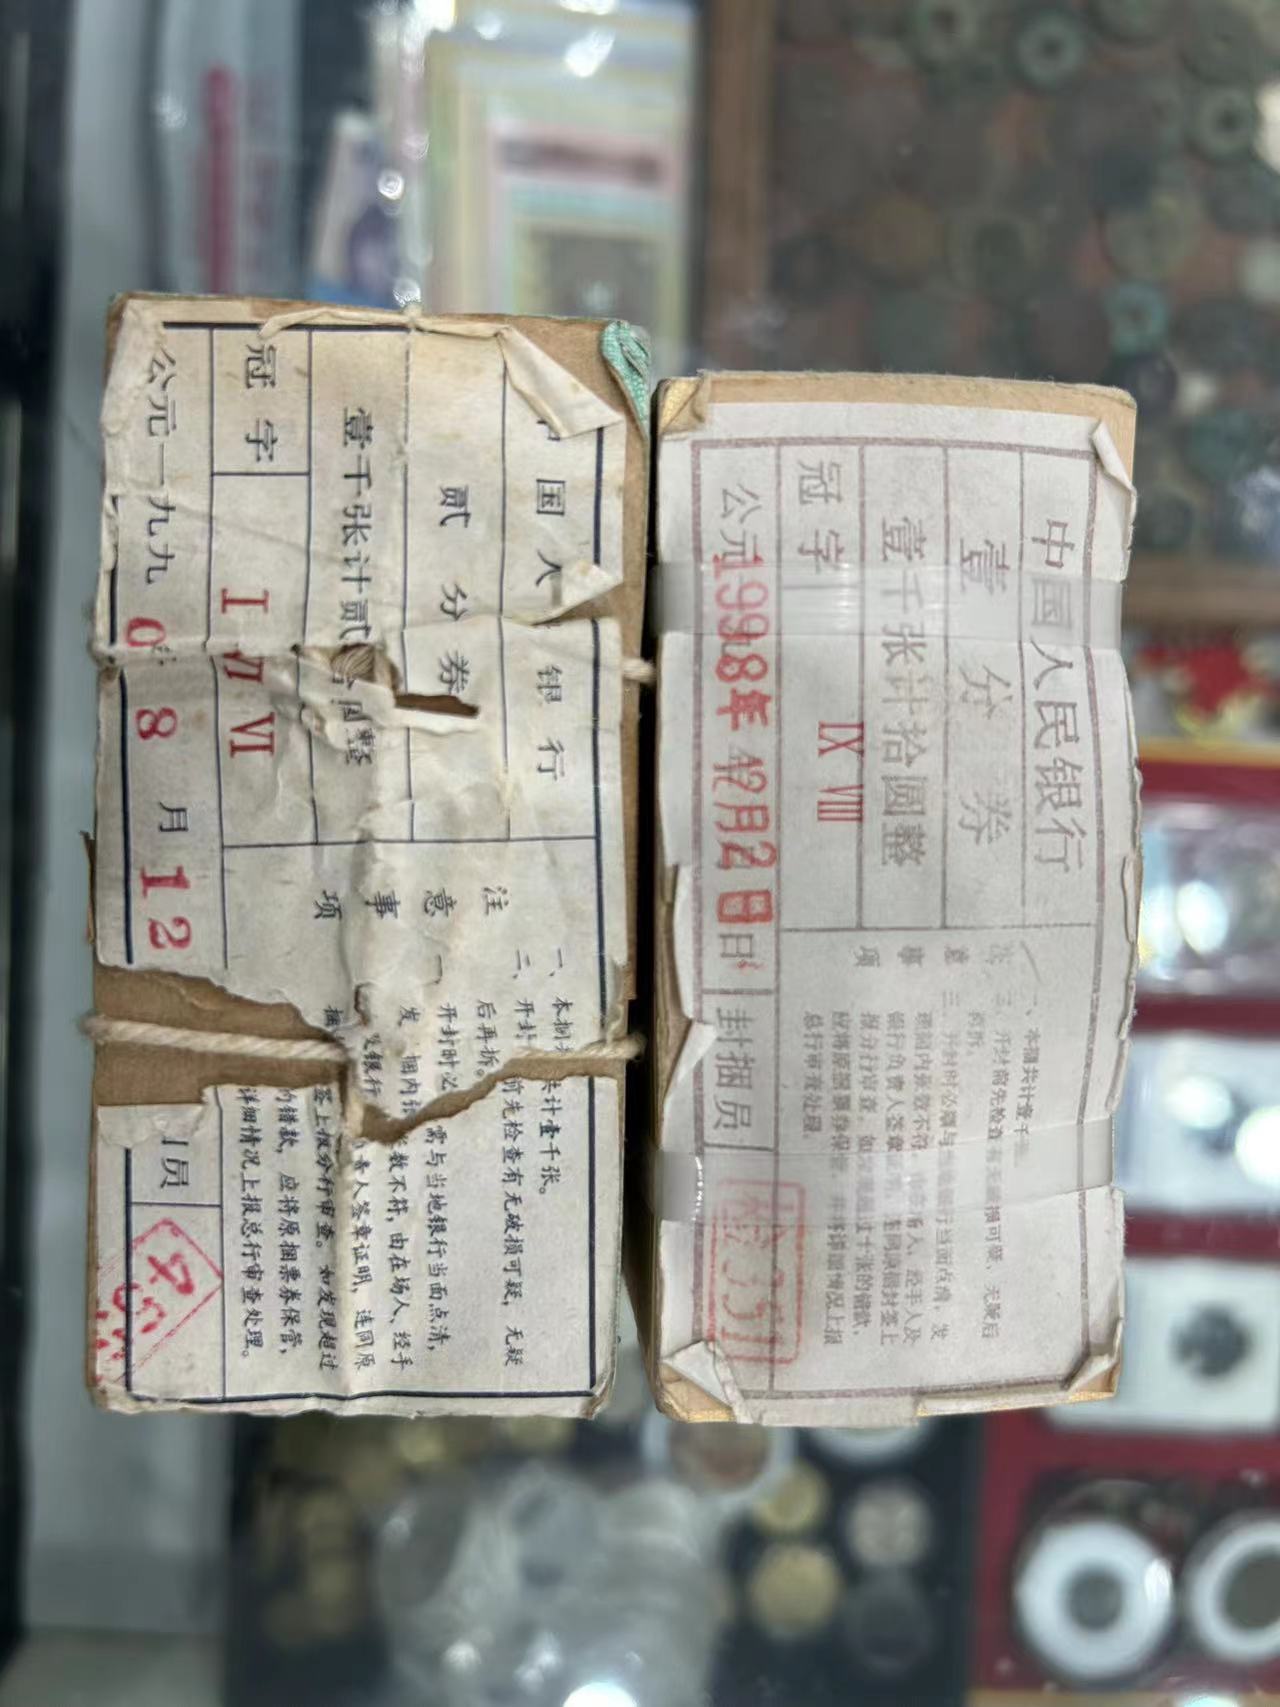 国人
银行
贰分券
壹千张计贰
圆整
冠字
I VI VI
公元一九九0
8月12
注意事项
一、本捆共计壹千张。
二、开封前先检查有无破损可疑，无疑
后再拆。
开封时必需与当地银行当面点清，
发
捆内张数不符，由在场人、经手
银行
责人签章证明，连同原
签上报分行审查。如发现超过
的错款，应将原捆票券保管，
详细情况上报总行审查处理。
员
中国人民银行
壹分券
壹千张计拾圆整
冠字
IX VIII
公元1998年12月2日
封捆员
注意事项
一、本捆共计壹千
二、开封前先检查有无破损可疑、无疑后
再拆。
三、开封时必需与当地银行当面点清，发
现捆内张数不符，由在场人、经手人及
银行负责人签章证明，连同原捆封签上
报分行审查。如发现超过十张的错款，
应将原捆票券保管，详细情况上报
总行审查处理。